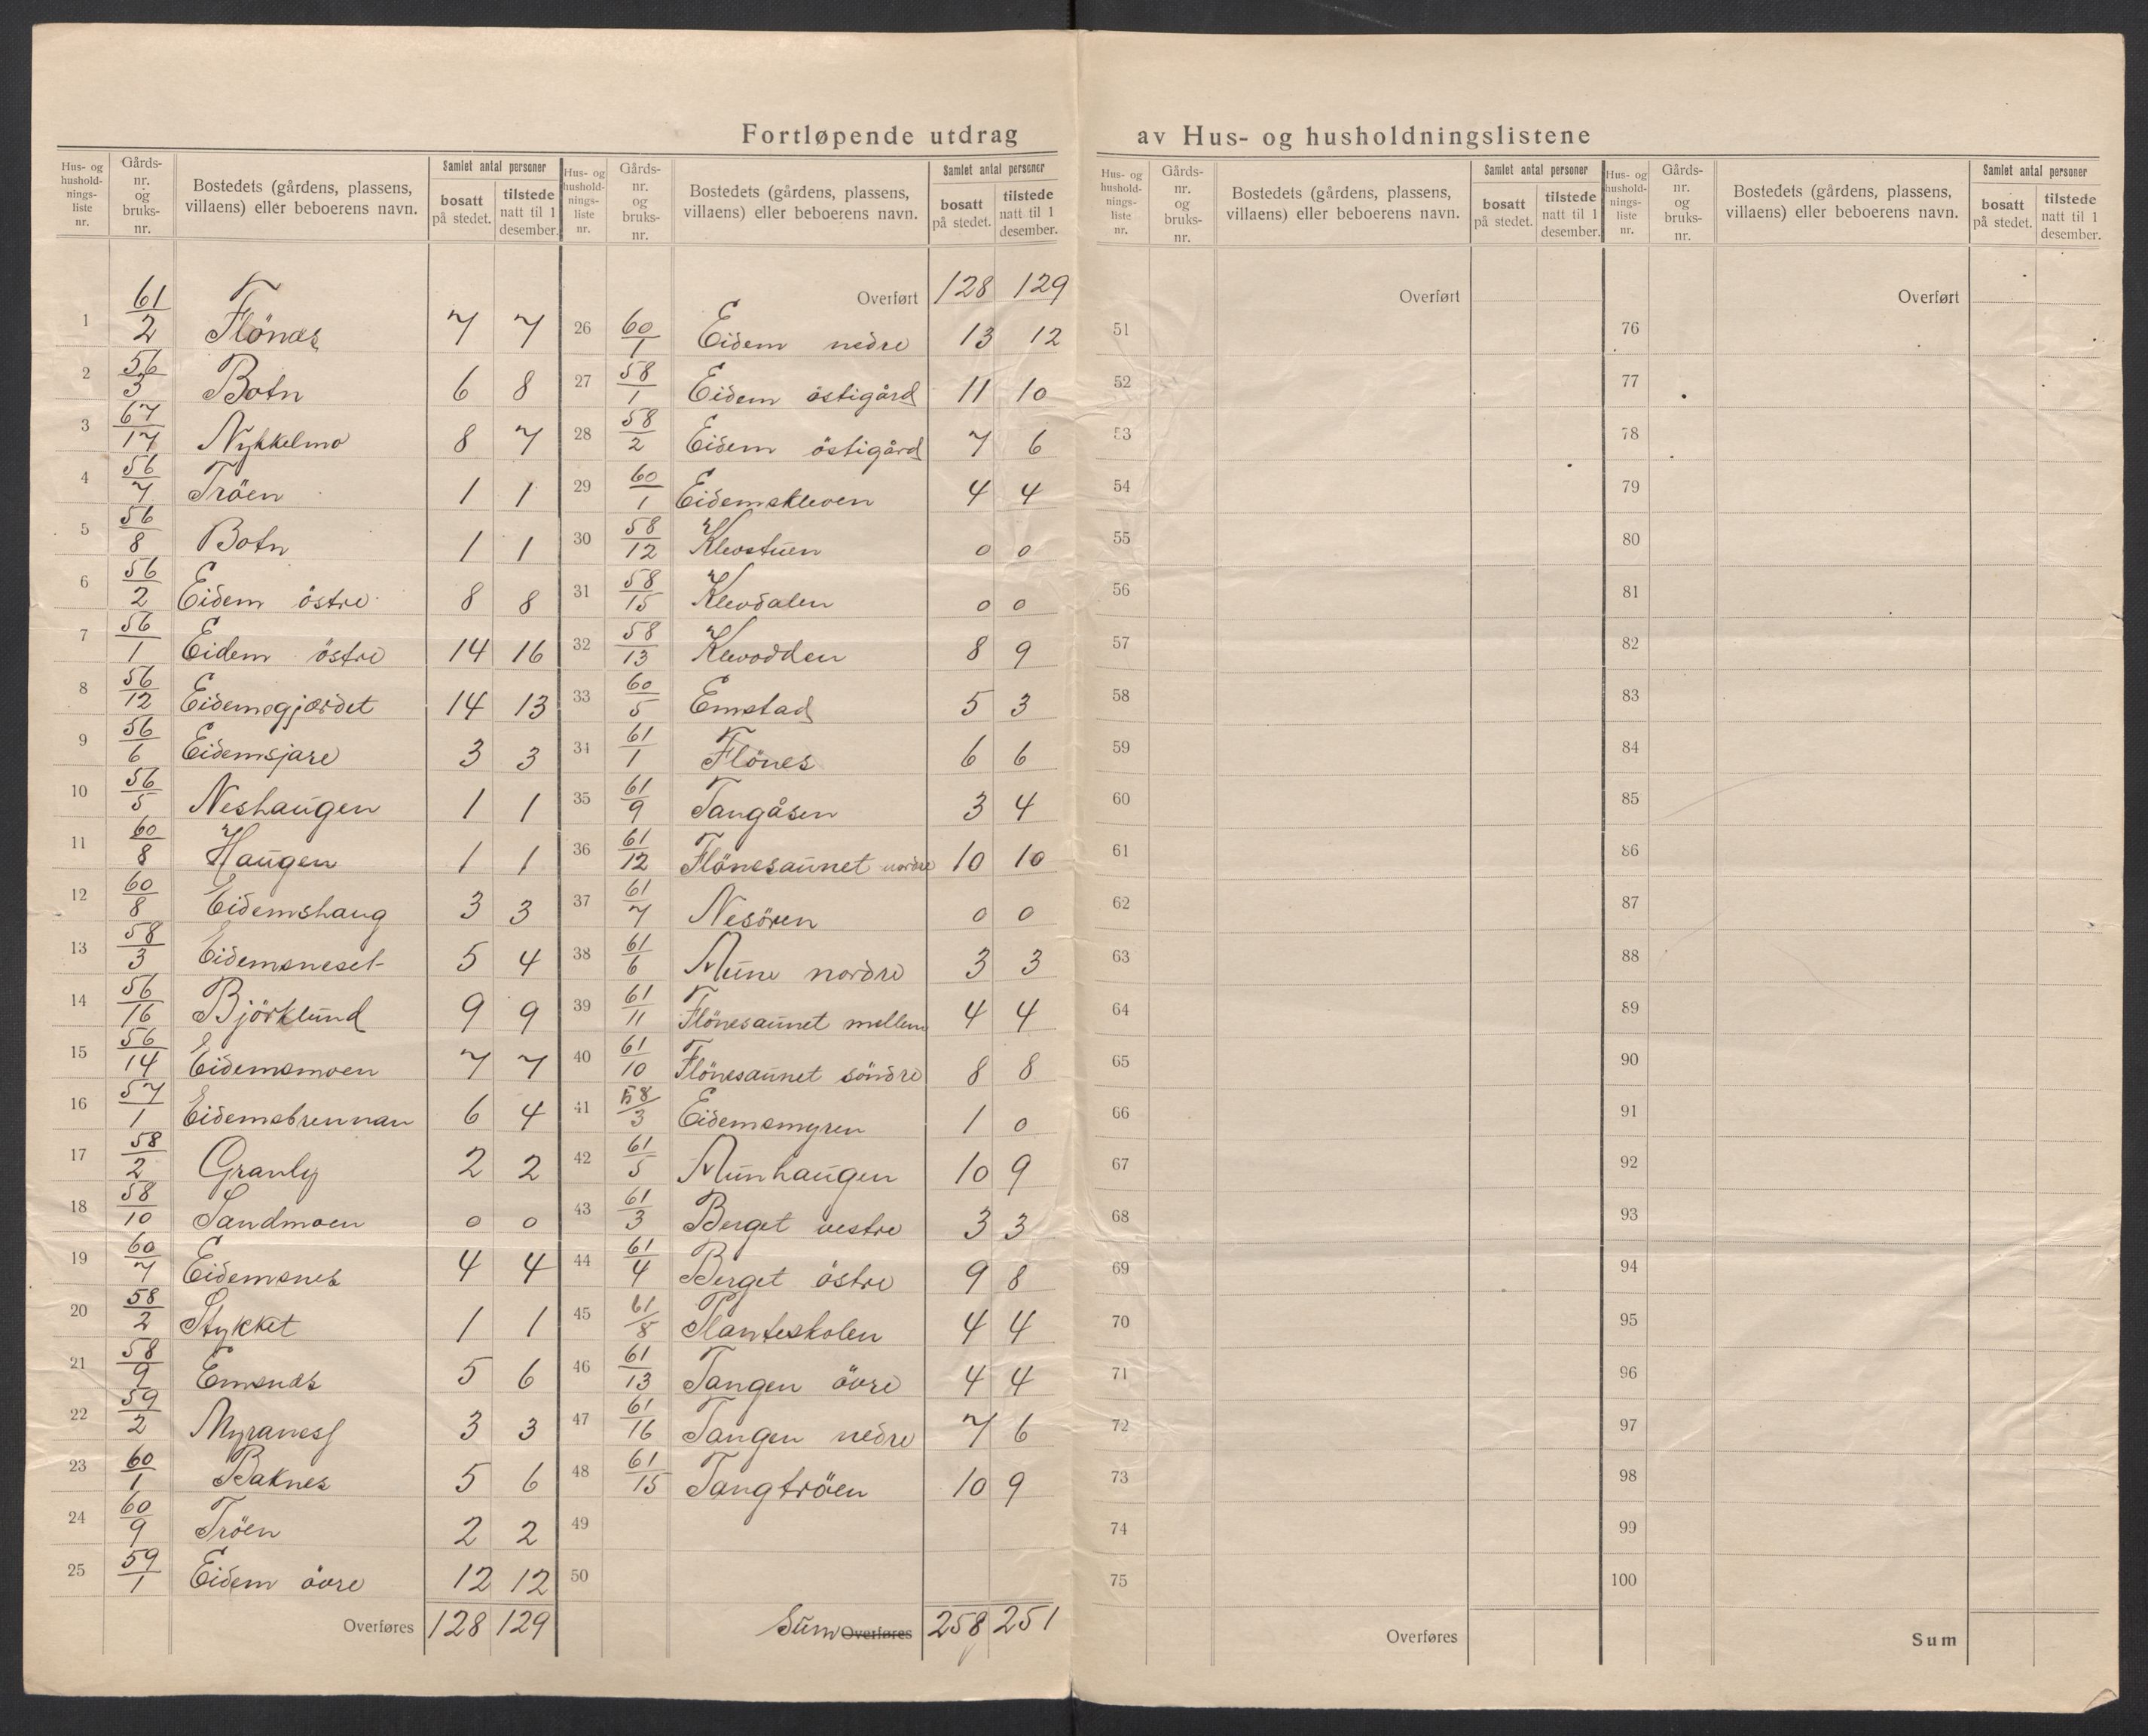 Fortløpende utdrag av Hus- og husholdningslistene
Hus- og husholdnings-liste nr. | Gårds-nr. og bruks-nr. | Bostedets (gårdens, plassens, villaens) eller beboerens navn. | Samlet antal personer bosatt på stedet. | tilstede natt til 1 desember.
1 61/2 Flönes 7 7
2 56/3 Botn 6 8
3 67/17 Nykkelmo 8 7
4 56/7 Tröen 1 1
5 56/8 Botn 1 1
6 56/2 Eidem östre 8 8
7 56/1 Eidem östre 14 16
8 56/12 Eidemsgjærdet 14 13
9 56/6 Eidemsjare 3 3
10 56/5 Neshaugen 1 1
11 60/8 Haugen 1 1
12 60/8 Eidemshaug 3 3
13 58/3 Eidemsneset 5 4
14 56/16 Björklund 9 9
15 56/14 Eidemsmoen 7 7
16 57/1 Eidemsbrennan 6 4
17 58/2 Granly 2 2
18 58/10 Sandmoen 0 0
19 60/7 Eidemsnes 4 4
20 58/2 Stykket 1 1
21 58/9 Emsnes 5 6
22 59/2 Myranes 3 3
23 60/1 Baknes 5 6
24 60/9 Tröen 2 2
25 59/1 Eidem övre 12 12
Overføres 128 129
Hus- og husholdnings-liste nr. | Gårds-nr. og bruks-nr. | Bostedets (gårdens, plassens, villaens) eller beboerens navn. | Samlet antal personer bosatt på stedet. | tilstede natt til 1 desember.
Overført 128 129
26 60/1 Eidem nedre 13 12
27 58/1 Eidem östigård 11 10
28 58/2 Eidem östigård 7 6
29 60/1 Eidemskleven 4 4
30 58/12 Klevstuen 0 0
31 58/15 Klevdalen 0 0
32 58/13 Klevodden 8 9
33 60/5 Emstad 5 3
34 61/1 Flönes 6 6
35 61/9 Tangåsen 3 4
36 61/12 Flönesaunet nordre 10 10
37 61/7 Nesören 0 0
38 61/6 Mune nordre 3 3
39 61/11 Flönesaunet mellem 4 4
40 61/10 Flönesaunet söndre 8 8
41 58/3 Eidemsmyren 1 0
42 61/5 Munhaugen 10 9
43 61/3 Berget vestre 3 3
44 61/4 Berget östre 9 8
45 61/8 Planteskolen 4 4
46 61/13 Tangen övre 4 4
47 61/16 Tangen nedre 7 6
48 61/15 Tangtröen 10 9
49
50
Sum Overføres 258 251
Hus- og husholdnings-liste nr. | Gårds-nr. og bruks-nr. | Bostedets (gårdens, plassens, villaens) eller beboerens navn. | Samlet antal personer bosatt på stedet. | tilstede natt til 1 desember.
Overført
51
52
53
54
55
56
57
58
59
60
61
62
63
64
65
66
67
68
69
70
71
72
73
74
75
Overføres
Hus- og husholdnings-liste nr. | Gårds-nr. og bruks-nr. | Bostedets (gårdens, plassens, villaens) eller beboerens navn. | Samlet antal personer bosatt på stedet. | tilstede natt til 1 desember.
Overført
76
77
78
79
80
81
82
83
84
85
86
87
88
89
90
91
92
93
94
95
96
97
98
99
100
Sum